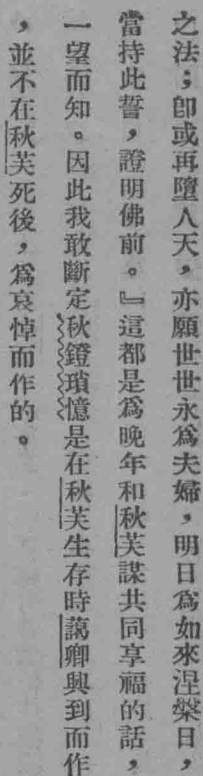 之法；卽或再墮人天，亦願世世永爲夫婦，明日爲如來涅槃日，
當持此誓，證明佛前。』這都是爲晚年和秋芙謀共同享福的話，
一望而知。因此我敢斷定秋鐙瑣憶是在秋芙生存時藹卿興到而作
，並不在秋芙死後，爲哀悼而作的。